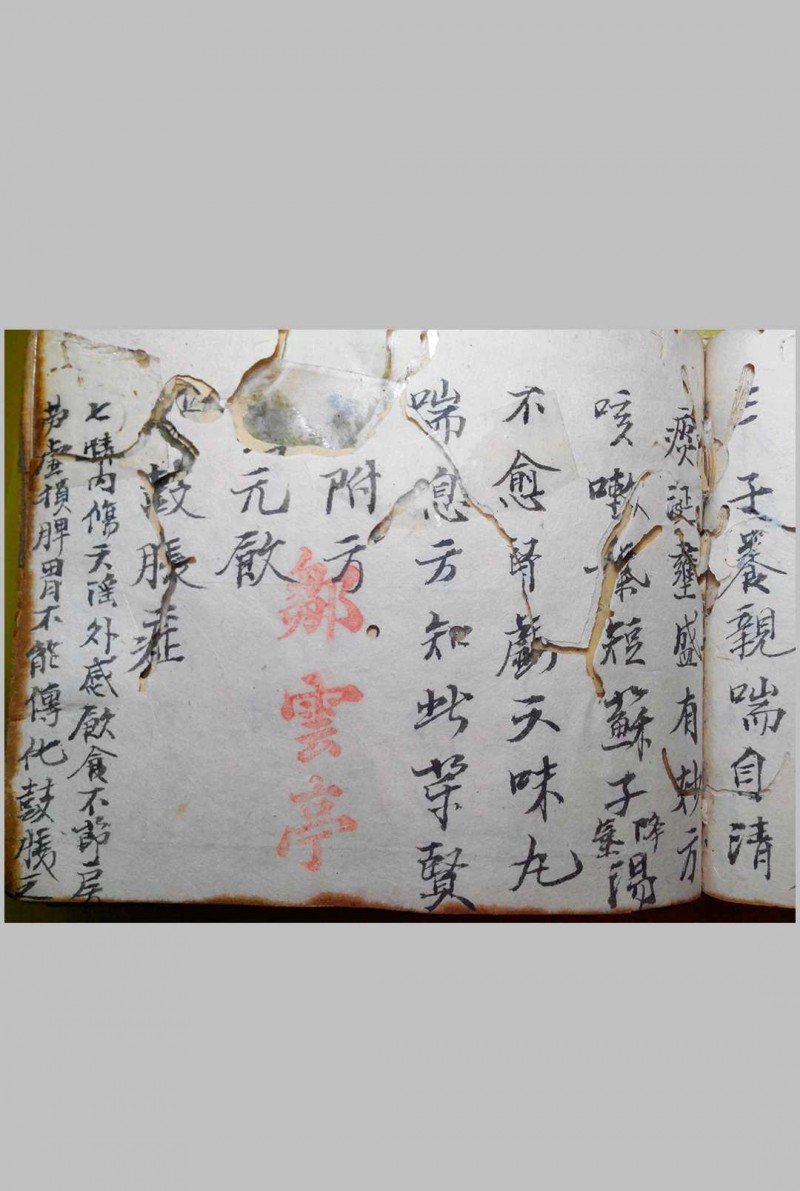 三子養親喘自清
痰涎壅盛有妙方
咳嗽氣短蘇子降氣湯
不愈腎虧六味丸
喘息方知此藥賢
附方
鄒雲亭
元飲
鼓脹症
七情內傷六淫外感飲食不節房
勞虛損脾胃不能傳化鼓脹之